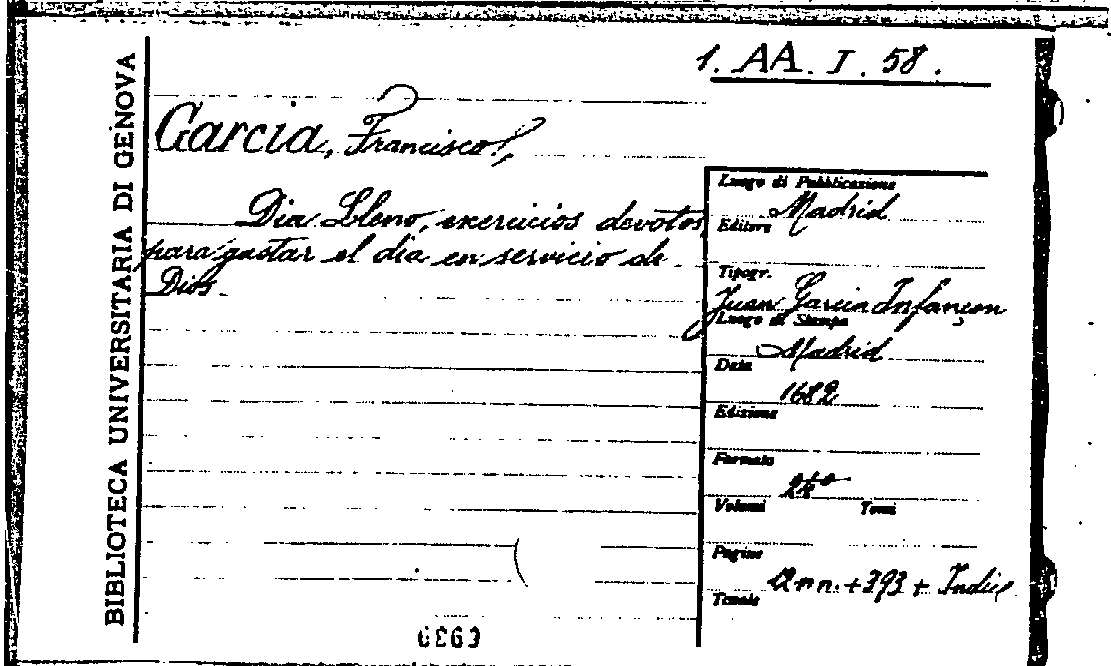 1. AA. I. 58.
BIBLIOTECA UNIVERSITARIA DI GENOVA
Garcia, Francisco,
Dia Lleno, exercicios devotos
para gastar el dia en servicio de
Dios
Luogo di Pubblicazione
Madrid
Editore
Tipogr.
Juan Garcia Infançon
Luogo di Stampa
Madrid
Data
1682
Edizione
Formato
24º
Volumi Tomi
Pagine
nn. + 393 + Indice
Tavole